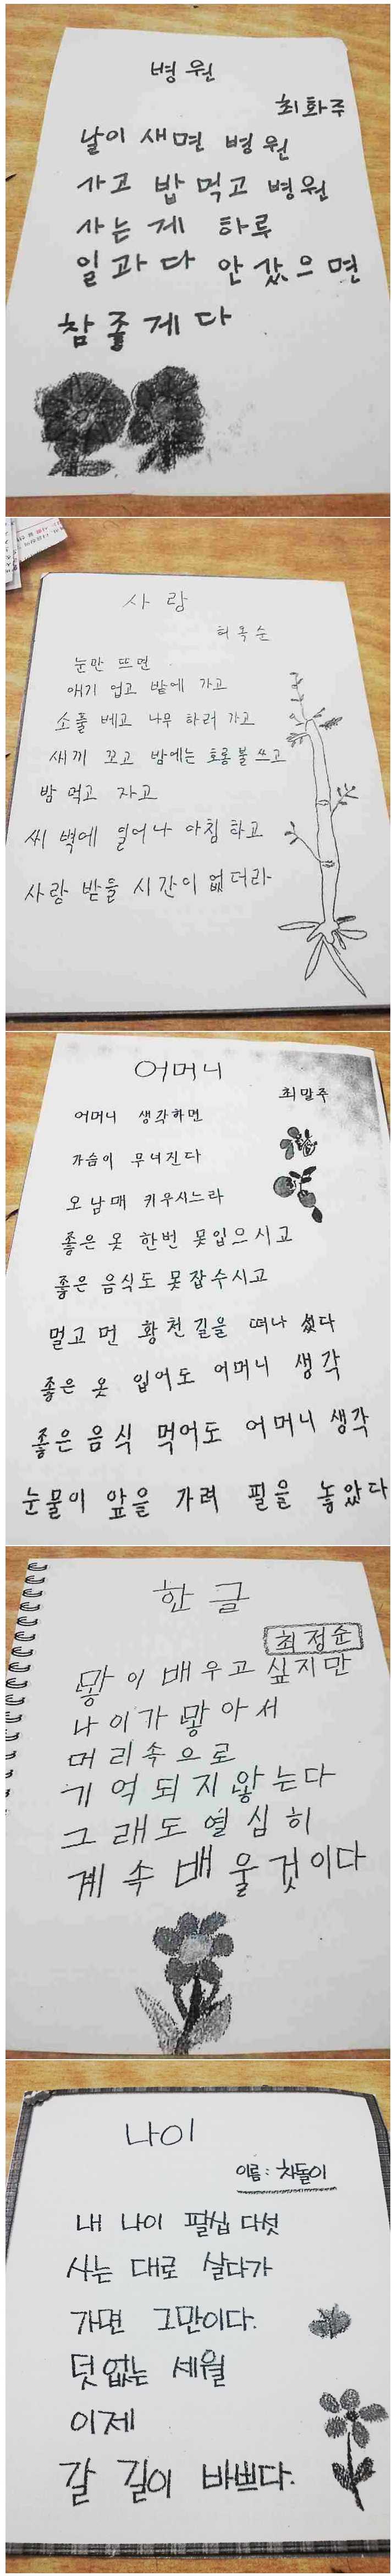 병원
최화주
날이 새면 병원
가고 밥 먹고 병원
사는 게 하루
일과다 안 갔으면
참 좋게다
사랑
허옥순
눈만 뜨면
애기 업고 밭에 가고
소풀 베고 나무 하러 가고
새끼 꼬고 밤에는 호롱불 쓰고
밥 먹고 자고
새벽에 일어나 아침 하고
사랑 받을 시간이 없더라
어머니
최말주
어머니 생각하면
가슴이 무너진다
오남매 키우시느라
좋은 옷 한번 못입으시고
좋은 음식도 못잡수시고
멀고 먼 황천길을 떠나 셨다
좋은 옷 입어도 어머니 생각
좋은 음식 먹어도 어머니 생각
눈물이 앞을 가려 필을 놓았다
한글
최정순
많이 배우고 싶지만
나이가 많아서
머리속으로
기억되지 않는다
그래도 열심히
계속 배울것이다
나이
이름: 차돌이
내 나이 팔십 다섯
사는 대로 살다가
가면 그만이다.
덧없는 세월
이제
갈 길이 바쁘다.